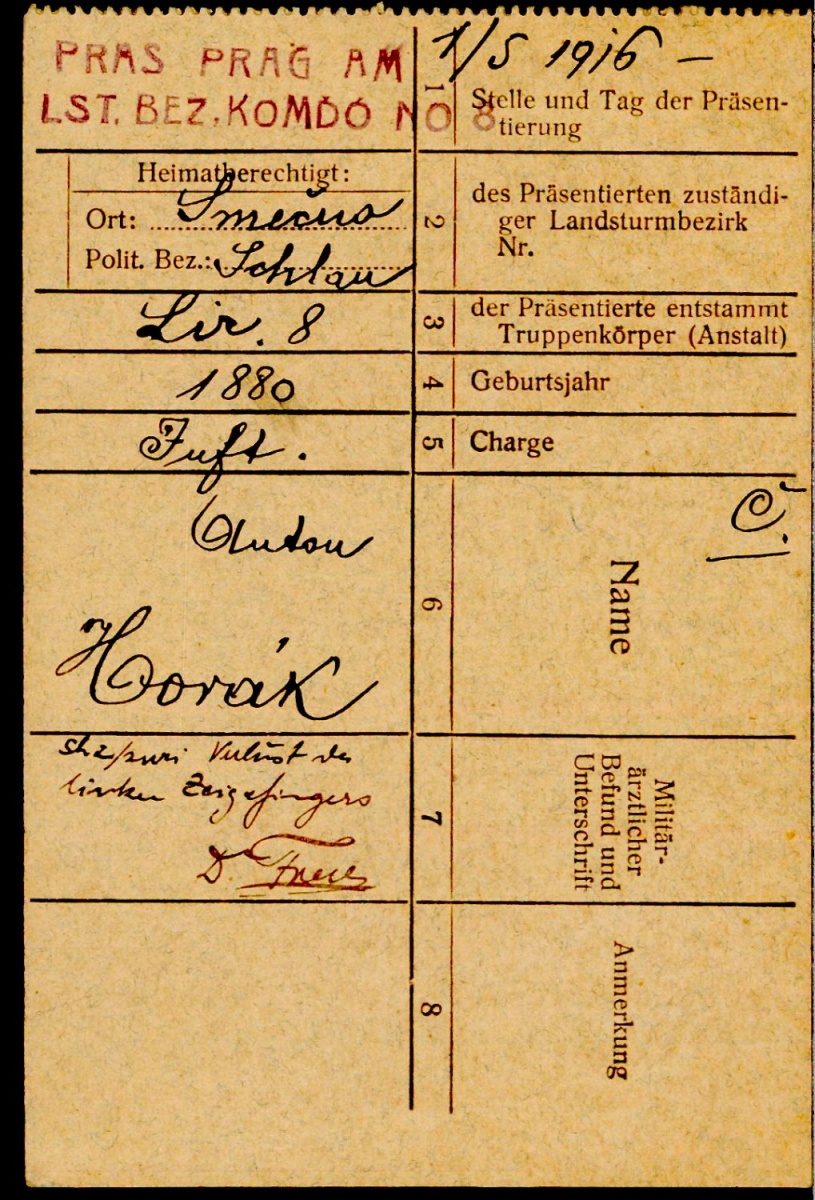 PRÄS PRAG AM 1/5 1916 —
LST. BEZ. KOMDO NO 8
1
Stelle und Tag der Präsen-
tierung
Heimatberechtigt:
Ort: Smečno
Polit. Bez.: Schlan
2
des Präsentierten zuständi-
ger Landsturmbezirk
Nr.
Lir. 8
3
der Präsentierte entstammt
Truppenkörper (Anstalt)
1880
4
Geburtsjahr
Inft.
5
Charge
Č.
Anton
Horák
6
Name
Verlust des
linken Zeigefingers
Dr
7
Militär-
ärztlicher
Befund und
Unterschrift
8
Anmerkung